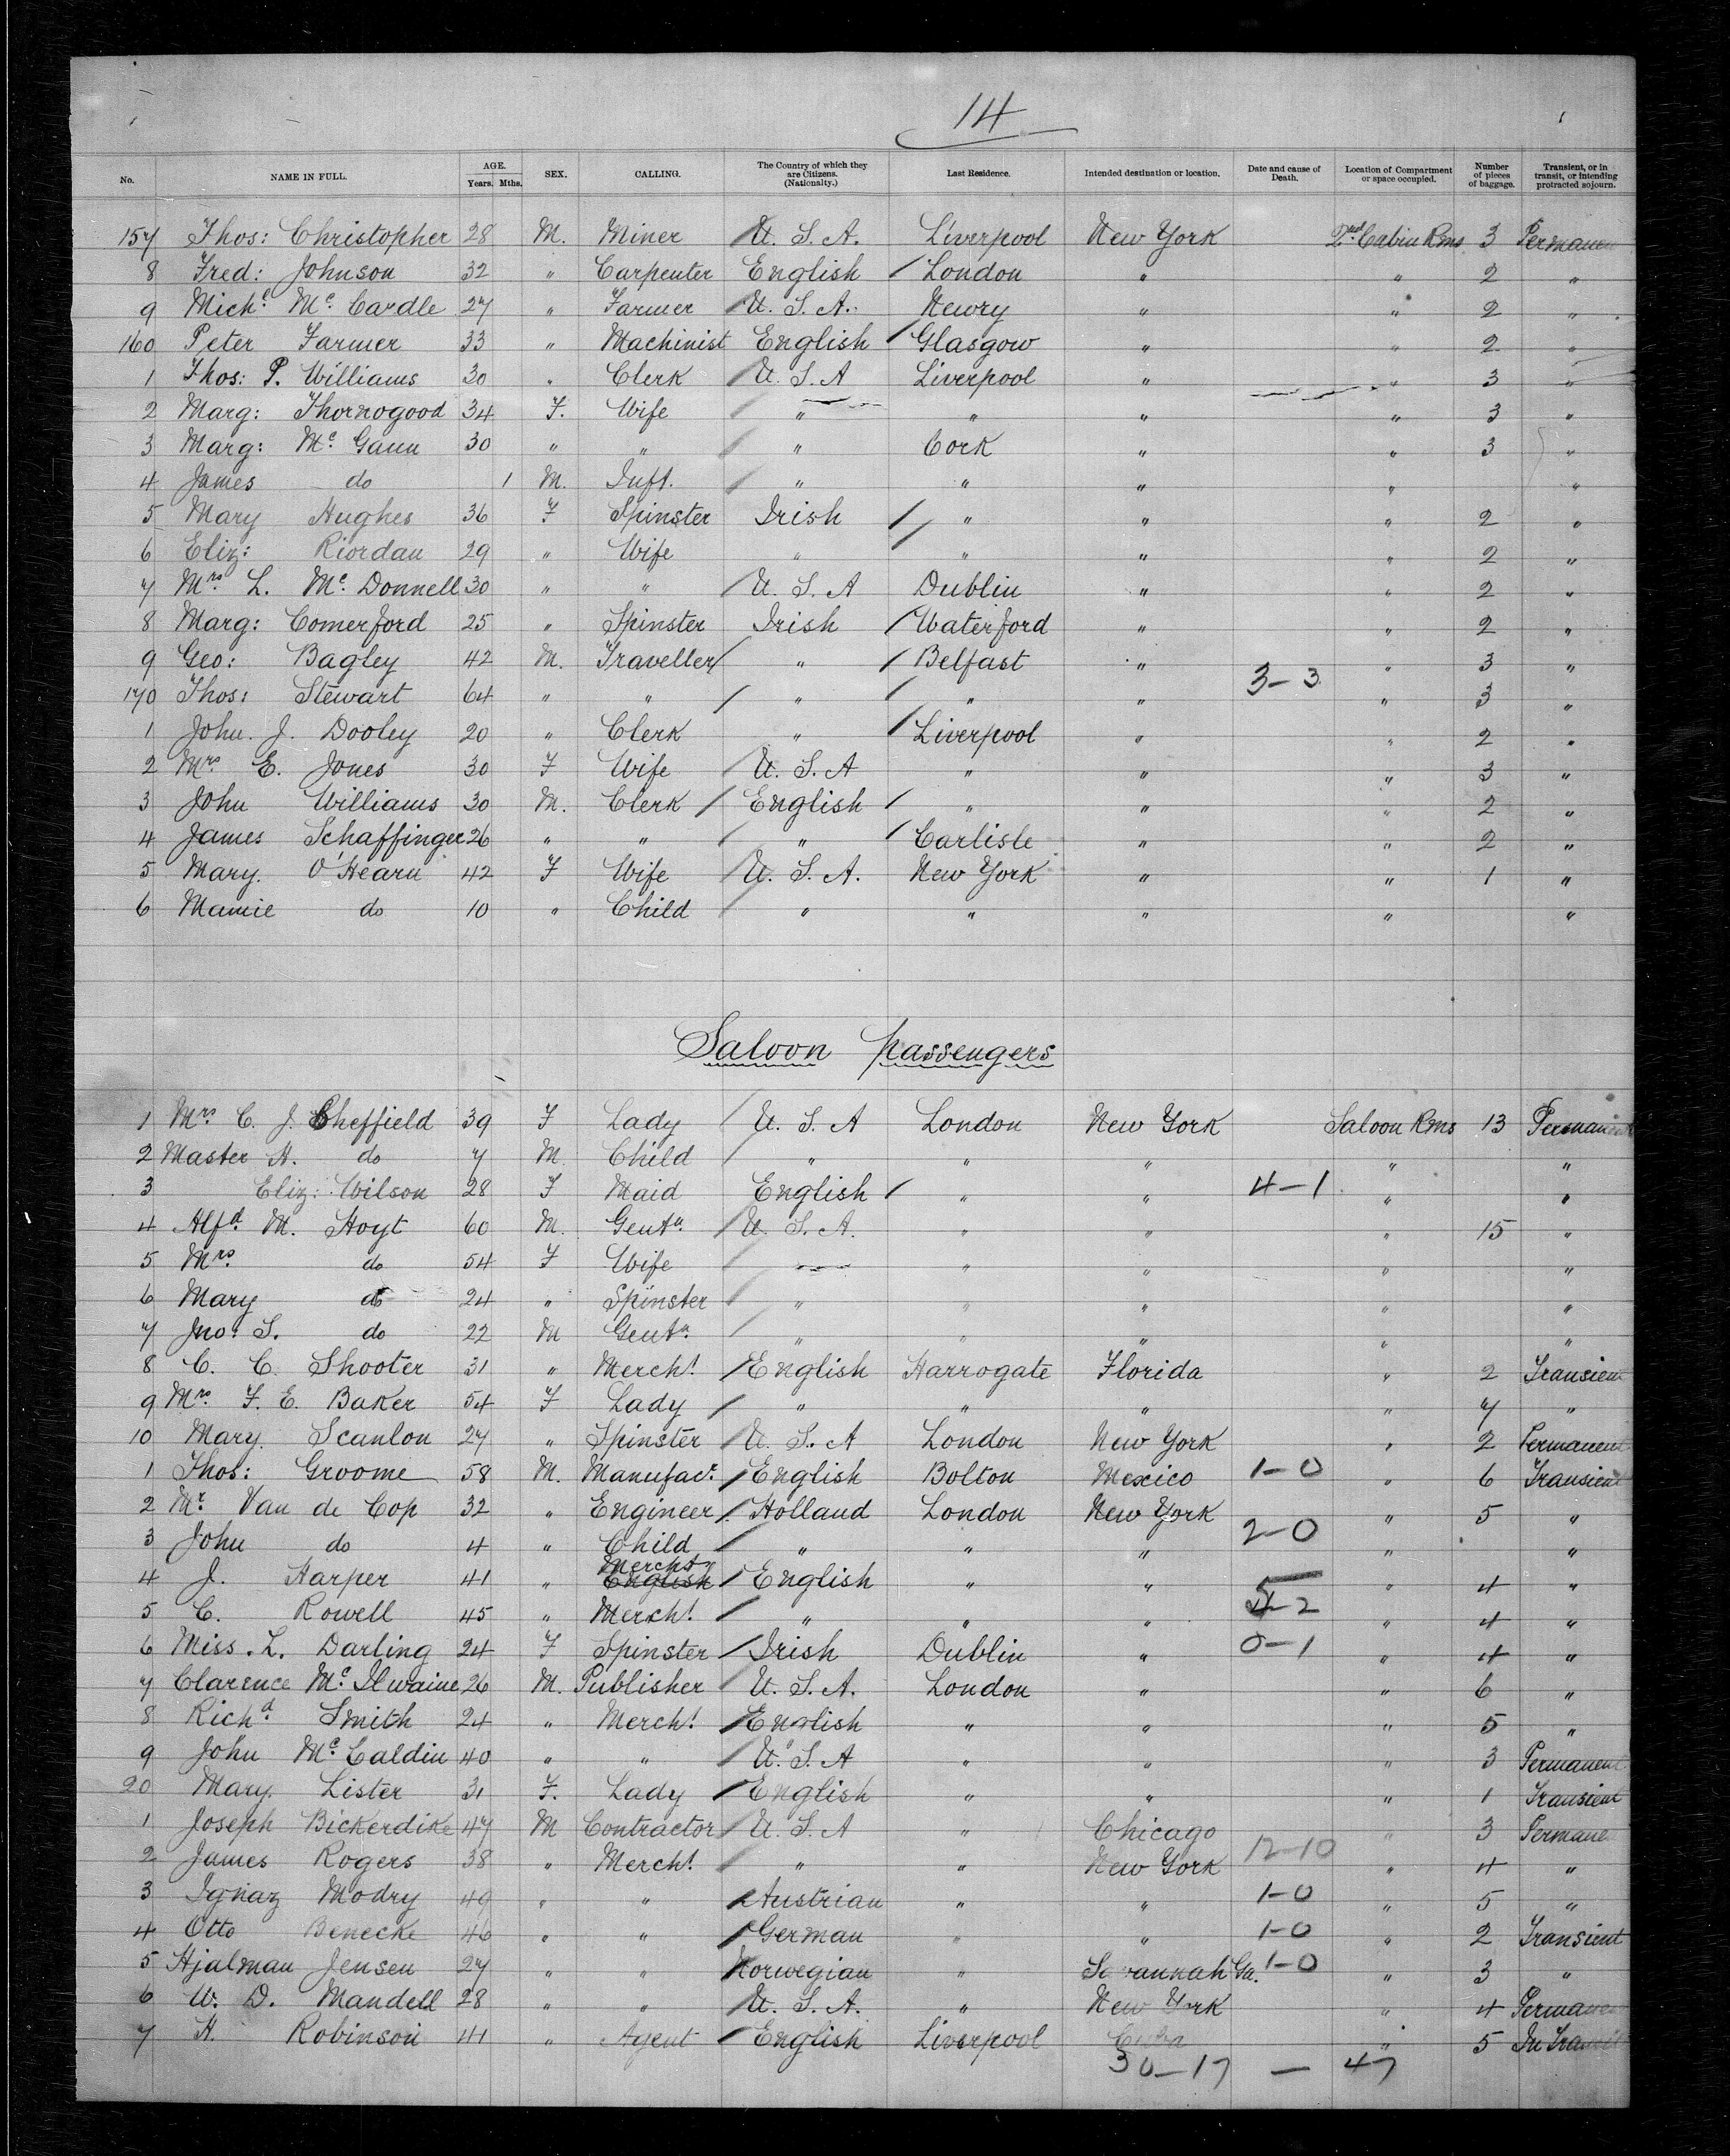 14
No. NAME IN FULL. AGE. Years. Mths. SEX. CALLING. The Country of which they are Citizens. (Nationalty.) Last Residence. Intended destination or location. Date and cause of Death. Location of Compartment or space occupied. Number of pieces of baggage. Transient, or in transit, or intending protracted sojourn.
157 Thos: Christopher 28 M. Miner U. S. A. Liverpool New York 2nd Cabin Rms 3 Permanen
8 Fred: Johnson 32 " Carpenter English London " " 2 "
9 Michl. Mc. Cardle 27 " Farmer U. S. A. Newry " " 2 "
160 Peter Farmer 33 " Machinist English Glasgow " " 2 "
1 Thos: P. Williams 30 " Clerk U. S. A Liverpool " " 3 "
2 Marg: Thornogood 34 F. Wife " " " " 3 "
3 Marg: Mc. Gann 30 " " " Cork " " 3 "
4 James do 1 M. Inft. " " " " "
5 Mary Hughes 36 F Spinster Irish " " " 2 "
6 Eliz: Riordan 29 " Wife " " " " 2 "
7 Mrs L. Mc. Donnell 30 " " U. S. A Dublin " " 2 "
8 Marg: Comerford 25 " Spinster Irish Waterford " " 2 "
9 Geo: Bagley 42 M. Traveller " Belfast " 3-3 " 3 "
170 Thos: Stewart 64 " " " " " " 3 "
1 John. J. Dooley 20 " Clerk " Liverpool " " 2 "
2 Mrs E. Jones 30 F Wife U. S. A " " " 3 "
3 John Williams 30 M. Clerk English " " " 2 "
4 James Schaffinger 26 " " " Carlisle " " 2 "
5 Mary. O'Hearn 42 F Wife U. S. A. New York " " 1 "
6 Mamie do 10 " Child " " " " "
Saloon Passengers
1 Mrs C. J. Sheffield 39 F Lady U. S. A London New York Saloon Rms 13 Permanent
2 Master H. do 7 M Child " " " " "
3 Eliz: Wilson 28 F Maid English " " 4-1 " "
4 Alfd. M. Hoyt 60 M. Gentn. U. S. A. " " " 15 "
5 Mrs. do 54 F Wife " " " " "
6 Mary do 24 " Spinster " " " " "
7 Jno: S. do 22 M Gentn. " " " " "
8 C. C. Shooter 31 " Mercht. English Harrogate Florida " 2 Transient
9 Mrs. F. E. Baker 54 F Lady " " " " 7 "
10 Mary. Scanlon 27 " Spinster U. S. A London New York " 2 Permanent
1 Thos: Groome 58 M. Manufacr. English Bolton Mexico 1-0 " 6 Transient
2 Mr. Van de Cop 32 " Engineer Holland London New York " 5 "
3 John do 4 " Child " " " 2-0 " "
4 J. Harper 41 " Mercht English English " " 5 " 4 "
5 C. Rowell 45 " Mercht. " " " 4-2 " 4 "
6 Miss. L. Darling 24 F Spinster Irish Dublin " 0-1 " 4 "
7 Clarence Mc. Ilwaine 26 M. Publisher U. S. A. London " " 6 "
8 Richd. Smith 24 " Mercht. English " " " 5 "
9 John Mc. Caldin 40 " " U. S. A " " " 3 Permanent
20 Mary. Lister 31 F. Lady English " " " 1 Transient
1 Joseph Bickerdike 47 M Contractor U. S. A " Chicago " 3 Permane
2 James Rogers 38 " Mercht. " " New York 12-10 " 4 "
3 Ignaz Modry 49 " " Austrian " " 1-0 " 5 "
4 Otto Benecke 46 " " German " " 1-0 " 2 Transient
5 Hjalmau Jensen 27 " " Norwegian " Savannah Ga. 1-0 " 3 "
6 W. D. Mandell 28 " " U. S. A. " New York " 4 Permanen
7 H. Robinson 41 " Agent English Liverpool Cuba " 5 In Transit
30-17 - 47